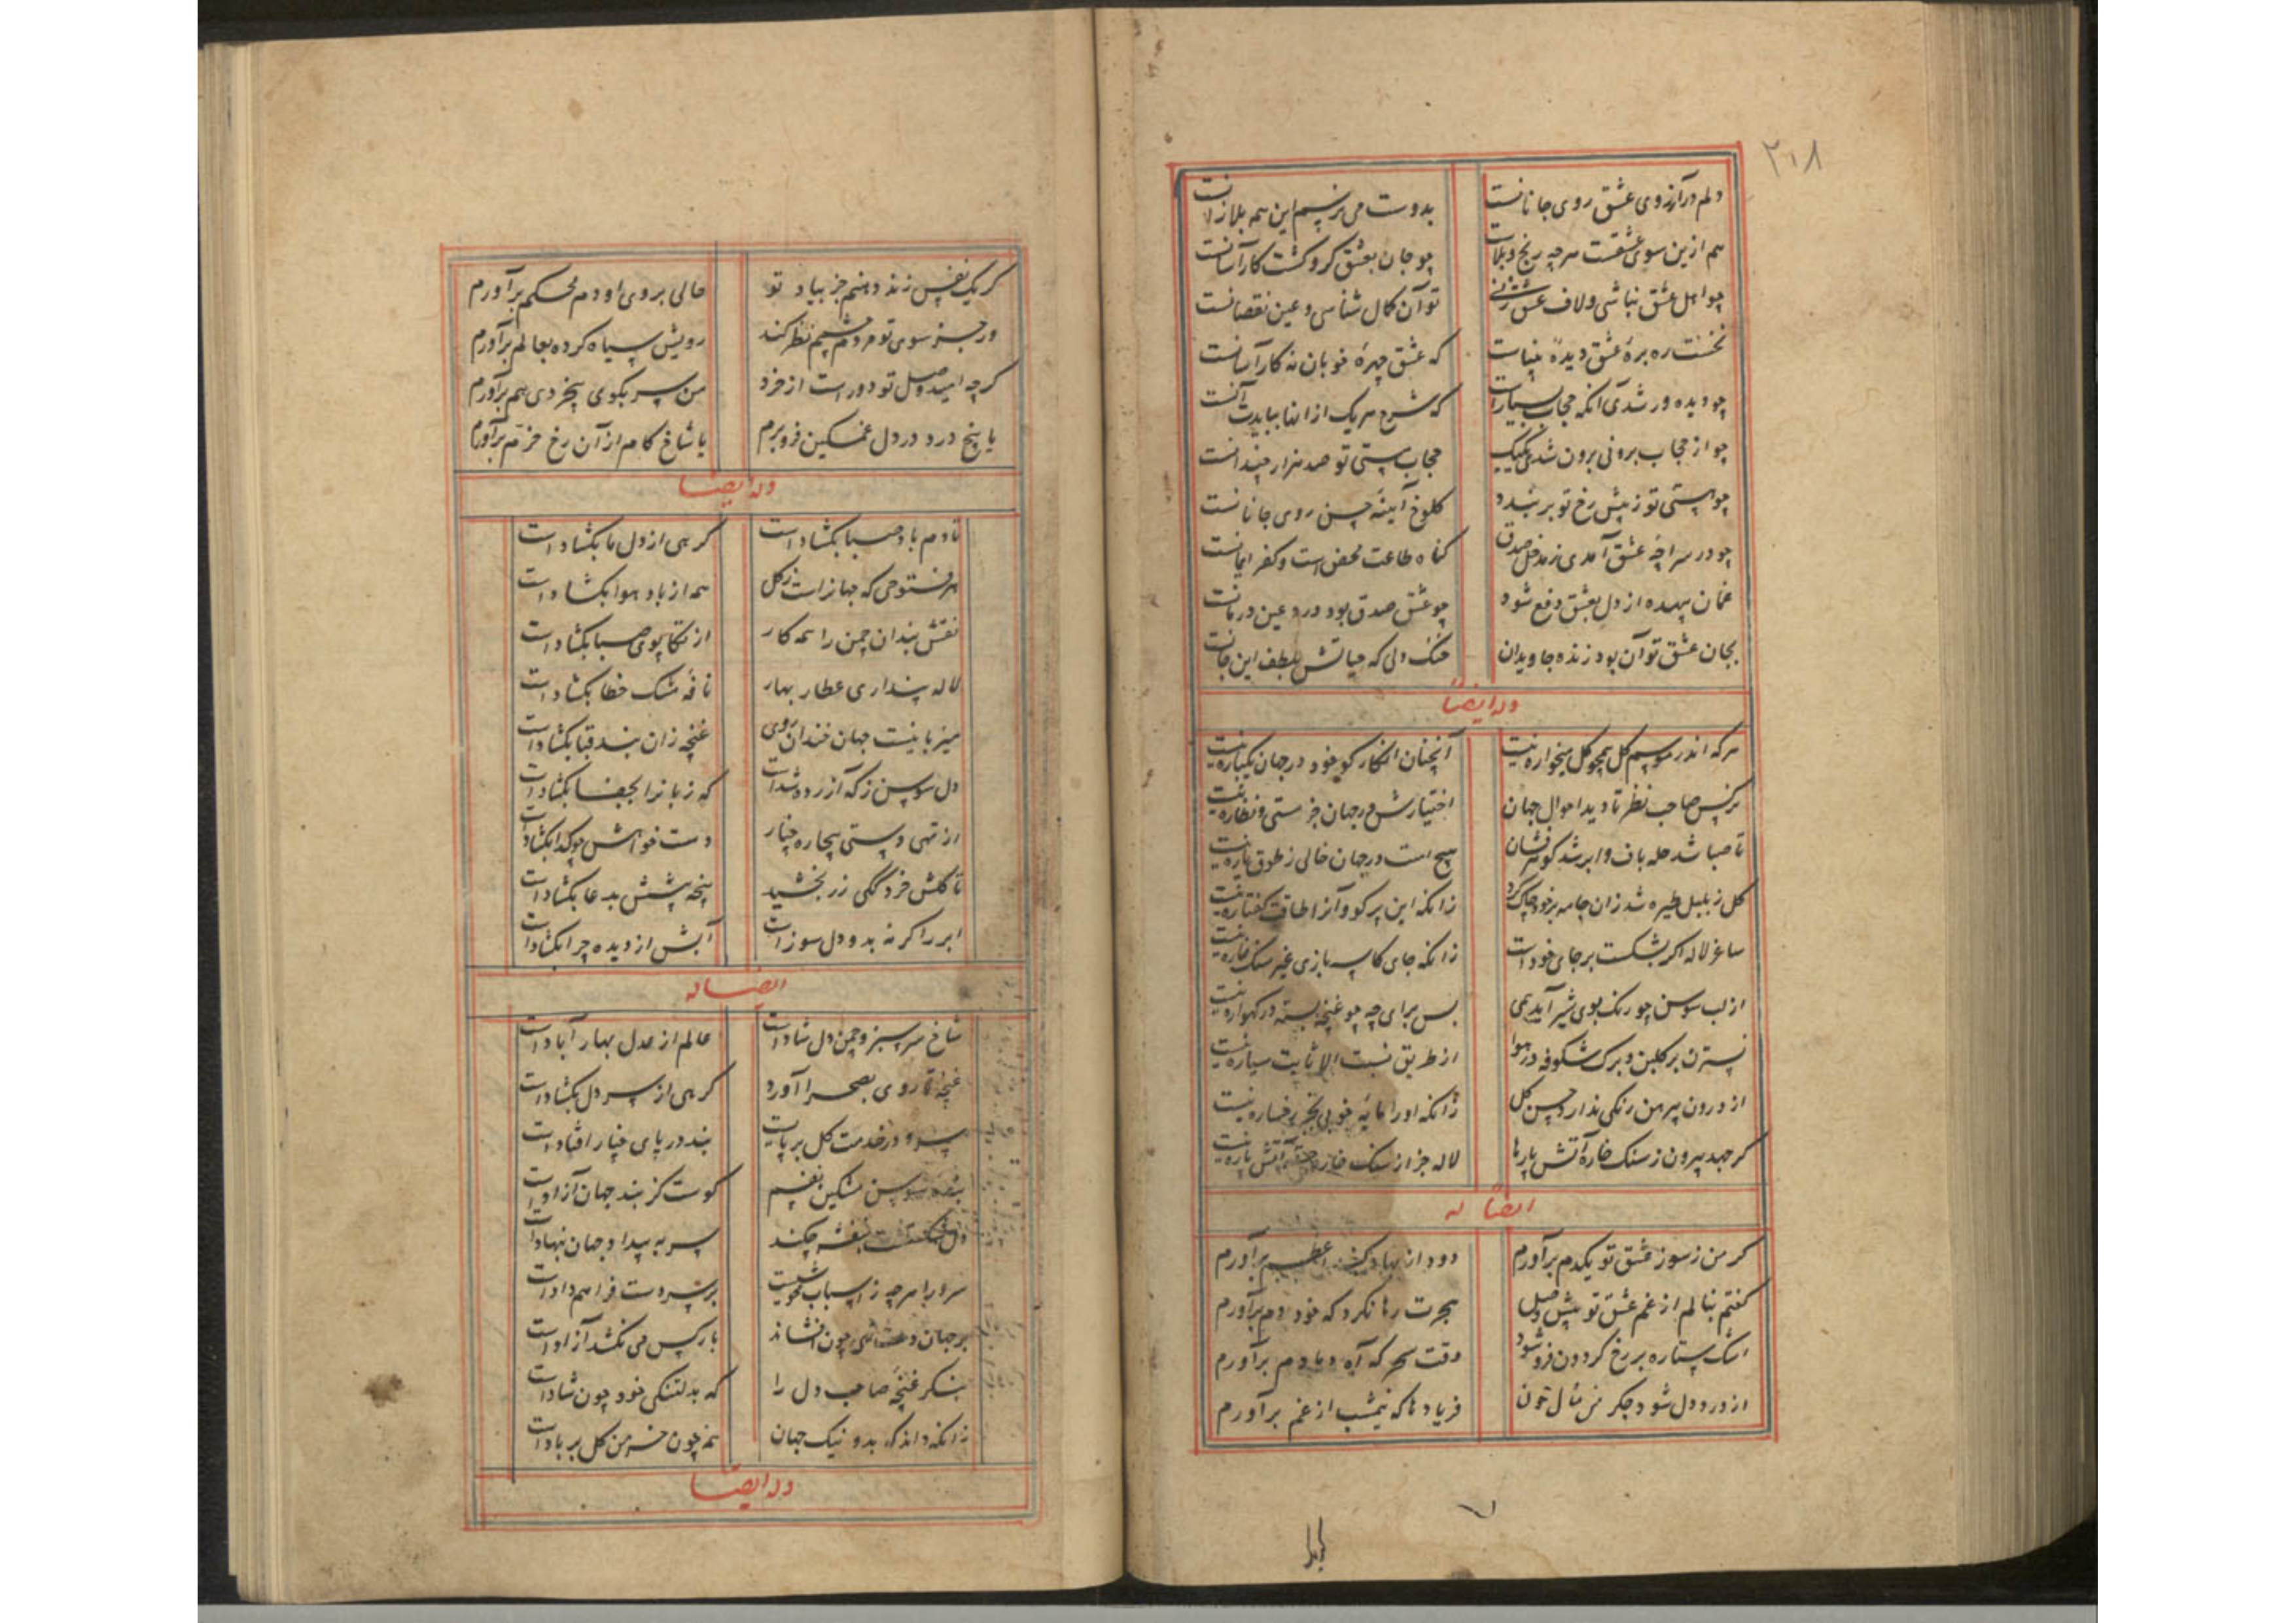 ۲۱۸
دلم در آرزوی عشق روی جانانست
بدوست می نرسیم این همه بلا زانست
هم ازین سوی عشقست هرچه رنج و بلاست
چو جان بعشق گرو گشت کار آسانست
چو اهل عشق نباشی و لاف عشق زنی
تو آن کمال شناسی و عین نقصانست
نخست ره بره عشق دیده بیناست
که عشق چهره خوبان نه کار آسانست
چو دیده ور شدی آنکه حجاب بسیارست
که شرح هر یک از انها بیایدت آنست
چو از حجاب برونی برون شدی یک یک
حجاب هستی تو صد هزار چندانست
چو هستی تو ز پیش رخ تو بر بندد
کلوخ آینه حسن روی جانانست
چو در سراچه عشق آمدی ز مدخل صدق
کناه طاعت محض است و کفر ایمانست
غمان بیهده از دل بعشق دفع شود
چو عشق صدق بود درد عین درمانست
بجان عشق توان بود زنده جاویدان
خنک دلی که حیاتش بلطف این جانست
وله ایضاً
هرکه اندر موسم کل همچو کل میخواره نیست
آنچنان انکار کو خود در جهان یکباره نیست
نرکس صاحب نظر تا دید احوال جهان
اختیارش در جهان جز مستی و نظاره نیست
تا صبا شد حله باف و ابر شد کوهر فشان
هیچ است در جهان خالی ز طوق و یاره نیست
کل ز بلبل طیره شد زان جامه بر خود چاک کرد
زانکه این پر کو و آنرا طاقت کفتاره نیست
ساغر لاله اکر بشکست بر جای خود است
زانکه جای کاسه بازی غیر سنک خاره نیست
از لب سوسن چو رنک بوی شیر آید همی
بس برای چه چو غنچه بسته در کهواره نیست
نسترن بر کلبن و برک شکوفه در هوا
از طریق نسبت الا ثابت سیاره نیست
از درون پیرهن رنکی ندارد حسن کل
زانکه او را مایه خوبی بجز رخساره نیست
کر جهد بیرون ز سنک خاره آتش پارها
لاله جز از سنک خاره جسته آتش پاره نیست
ایضاً له
کر من ز سوز عشق تو یکدم برآورم
دود از نهاد کنبد اعظم برآورم
کفتم بنالم از غم عشق تو پیش وصل
هجرت رها نکرد که خود دم برآورم
اشک ستاره بر رخ کردون فرو شود
وقت سحر که آه دمادم برآورم
از درد دل شود جکر من مثال خون
فریادها که نیمشب از غم برآورم
کر یک نفس زند دهنم جز بیاد تو
حالی بروی او دم محکم برآورم
ور جز سوی تو مردم چشمم نظر کند
رویش سیاه کرده بعالم برآورم
کرچه امید وصل تو دورست از خرد
من سر بکوی بیخردی هم برآورم
یا بیخ درد در دل غمکین فرو برم
یا شاخ کام از آن رخ خرم برآورم
وله ایضا
تا دم باد صبا بکشادست
کرهی از دل ما بکشادست
هر فتوحی که جهانراست ز کل
همه از باد هوا بکشادست
نقش بندان چمن را همه کار
از تکاپوی صبا بکشادست
لاله پنداری عطار بهار
نافه مشک خطا بکشادست
میزبانیست جهان خندان روی
غنچه زان بند قبا بکشادست
دل سوسن ز که آزرده شدست
که زبانرا بجفا بکشادست
از تهی دستی بیچاره چنار
دست خواهش چو کدا بکشادست
تا کلش خردککی زر بخشید
پنجه پیشش بدعا بکشادست
ابر را کر نه بدو دل سوزست
آبش از دیده چرا بکشادست
ایضا له
شاخ سرسبز و چمن دل شادست
عالم از عدل بهار آبادست
غنچه تا روی بصحرا آورد
کرهی از سر دل بکشادست
سرو در خدمت کل بر پایست
بند در پای چنار افتادست
بنده سوسن مشکین نفسم
کوست کز بند جهان آزادست
دل شکستست بنفشه چکند
سر به بیداد جهان بنهادست
سرو را هرچه ز اسباب خوشیست
برسر دست فراهم دادست
بر جهان دست تهی چون افشاند
بار کس می نکشد آزادست
بنکر غنچه صاحب دل را
که بدلتنکی خود چون شادست
زانکه داند که بد و نیک جهان
همچون خرمن کل بر بادست
وله ایضا